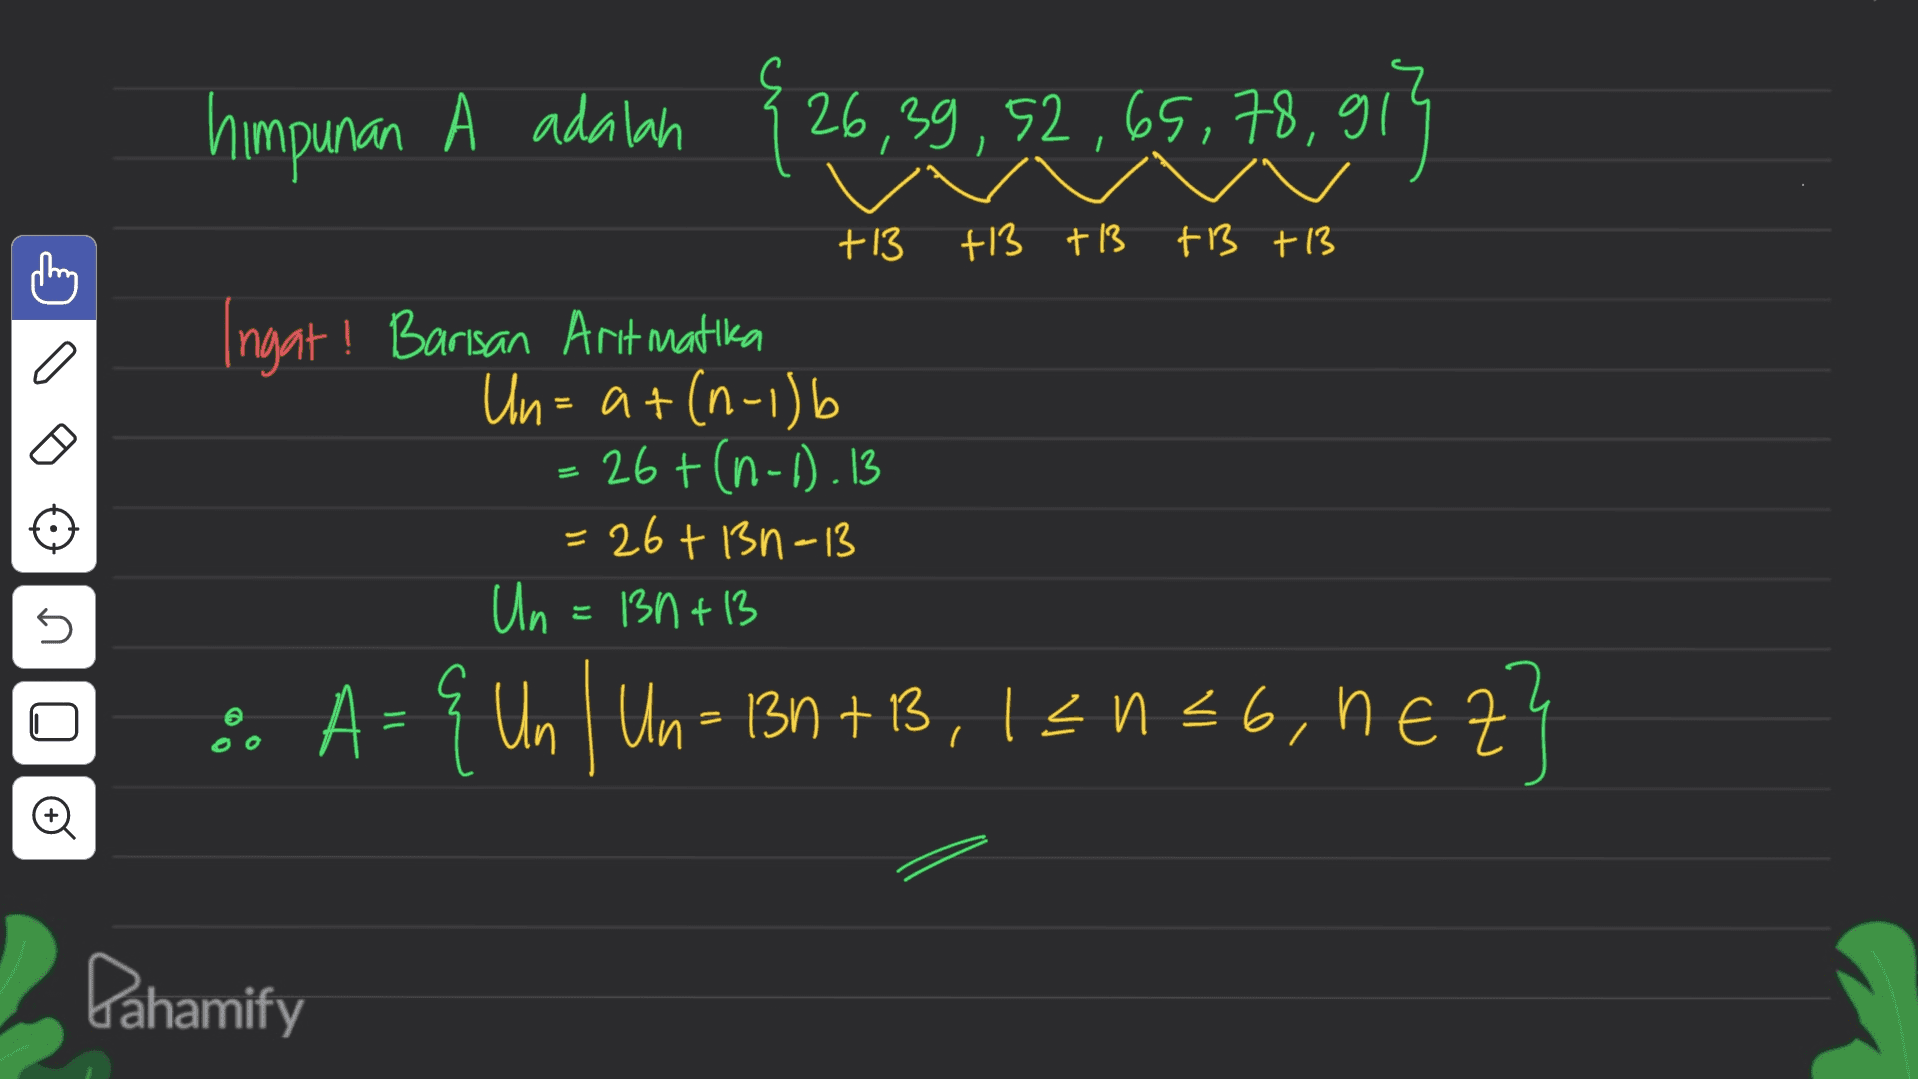 himpunan A adalah {26, 39, 52, 65, 78, 91}
+13 +13 +13 +13 +13
Ingat! Barisan Aritmatika
Un = a + (n-1)b
= 26 + (n-1). 13
= 26 + 13n - 13
Un = 13n + 13
∴ A = {Un | Un = 13n + 13, 1 ≤ n ≤ 6, n ∈ Z}
Pahamify